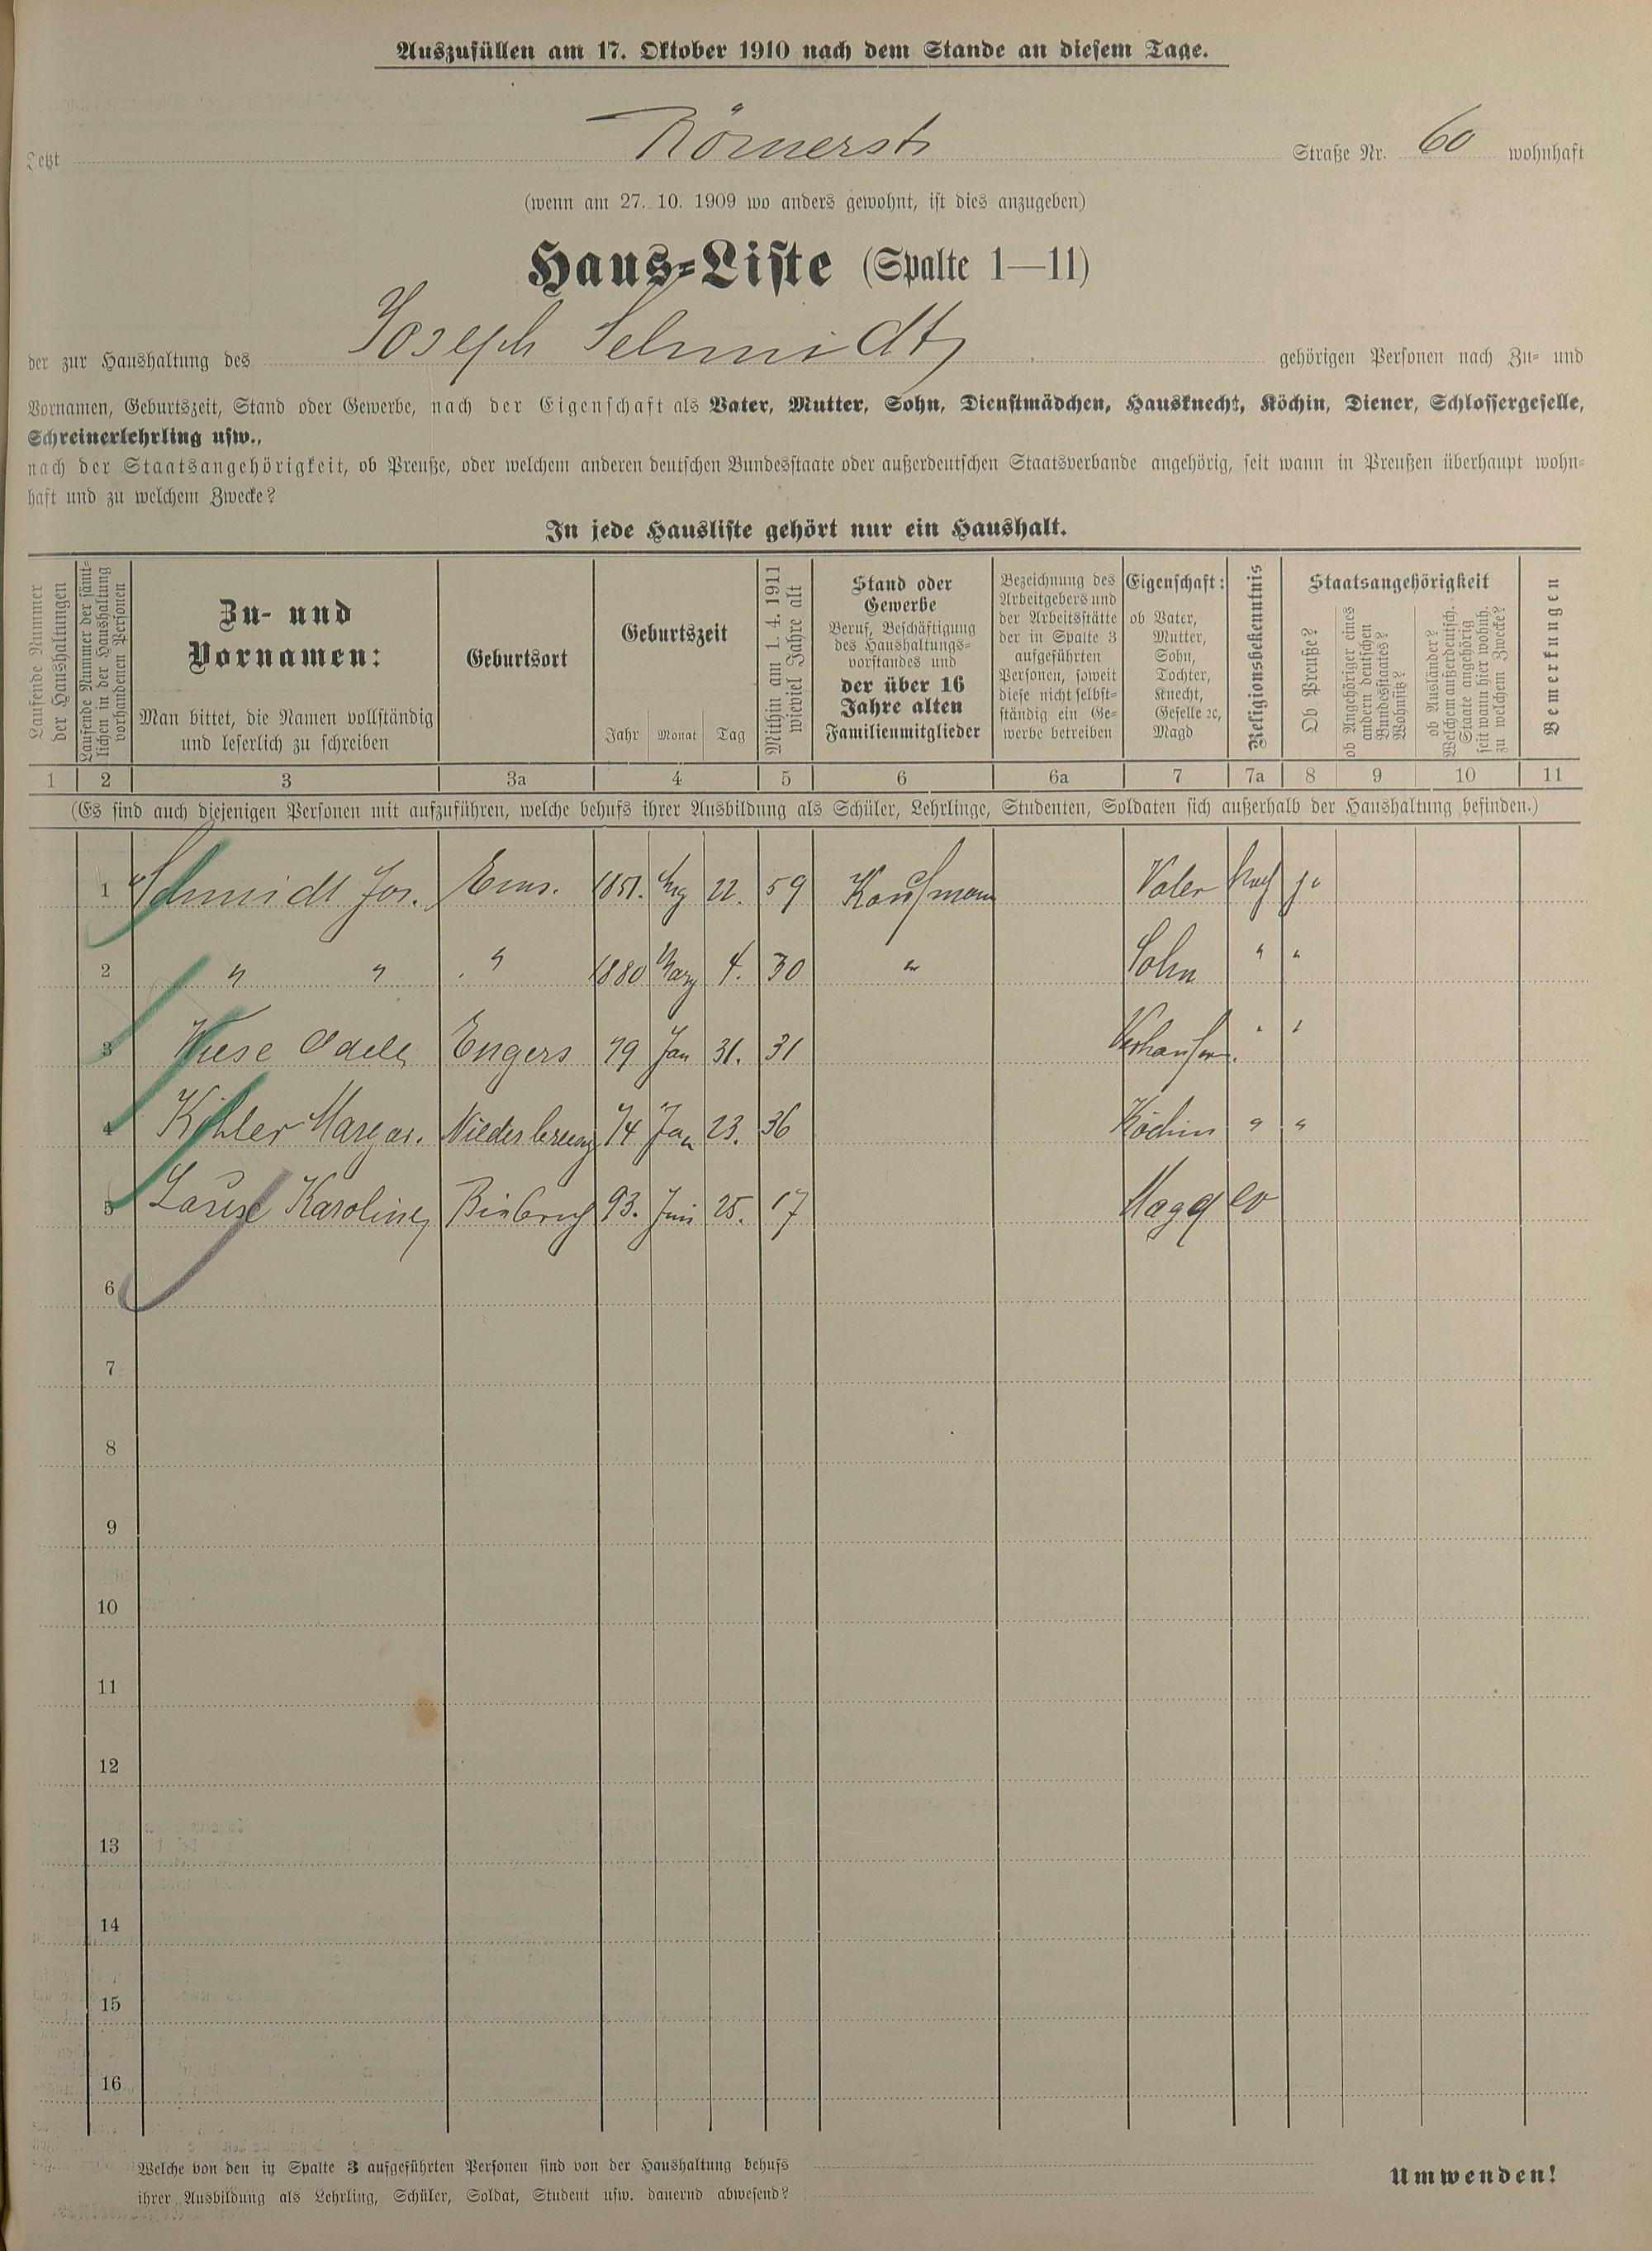 Auszufüllen am 17. Oktober 1910 nach dem Stande an diesem Tage.
Jetzt Römerstr Straße Nr. 60 wohnhaft
(wenn am 27. 10. 1909 wo anders gewohnt, ist dies anzugeben)
Haus-Liste (Spalte 1—11)
der zur Haushaltung des Joseph Schmidt gehörigen Personen nach Zu- und
Vornamen, Geburtszeit, Stand oder Gewerbe, nach der Eigenschaft als Vater, Mutter, Sohn, Dienstmädchen, Hausknecht, Köchin, Diener, Schlossergeselle,
Schreinerlehrling usw.,
nach der Staatsangehörigkeit, ob Preuße, oder welchem anderen deutschen Bundesstaate oder außerdeutschen Staatsverbande angehörig, seit wann in Preußen überhaupt wohn-
haft und zu welchem Zwecke?
In jede Hausliste gehört nur ein Haushalt.
Laufende Nummer
der Haushaltungen
Laufende Nummer der sämt-
lichen in der Haushaltung
vorhandenen Personen
Zu- und
Vornamen:
Man bittet, die Namen vollständig
und leserlich zu schreiben
Geburtsort
Geburtszeit
Jahr Monat Tag
Mithin am 1. 4. 1911
wieviel Jahre alt
Stand oder
Gewerbe
Beruf, Beschäftigung
des Haushaltungs-
vorstandes und
der über 16
Jahre alten
Familienmitglieder
Bezeichnung des
Arbeitgebers und
der Arbeitsstätte
der in Spalte 3
aufgeführten
Personen, soweit
diese nicht selbst-
ständig ein Ge-
werbe betreiben
Eigenschaft:
ob Vater,
Mutter,
Sohn,
Tochter,
Knecht,
Geselle ec,
Magd
Religionsbekenntnis
Staatsangehörigkeit
Ob Preuße?
ob Angehöriger eines
andern deutschen
Bundesstaates?
Wohnsitz?
ob Ausländer?
Welchem außerdeutsch.
Staate angehörig
seit wann hier wohnh.
zu welchem Zwecke?
Bemerkungen
1 2 3 3a 4 5 6 6a 7 7a 8 9 10 11
(Es sind auch diejenigen Personen mit aufzuführen, welche behufs ihrer Ausbildung als Schüler, Lehrlinge, Studenten, Soldaten sich außerhalb der Haushaltung befinden.)
1 Schmidt Jos. Ems. 1851. Aug 22. 59 Kaufmann Vater Kath ja
2 " " " 1880 März 4. 30 " Sohn " "
3 Wiese Adele Engers 79 Jan 31. 31 " "
4 Köhler Margar. 74 Jan 23. 36 Köchin " "
5 Karoline 93. Juni 25. 17 Magd ev
6
7
8
9
10
11
12
13
14
15
16
Welche von den in Spalte 3 aufgeführten Personen sind von der Haushaltung behufs
ihrer Ausbildung als Lehrling, Schüler, Soldat, Student usw. dauernd abwesend?
Umwenden!